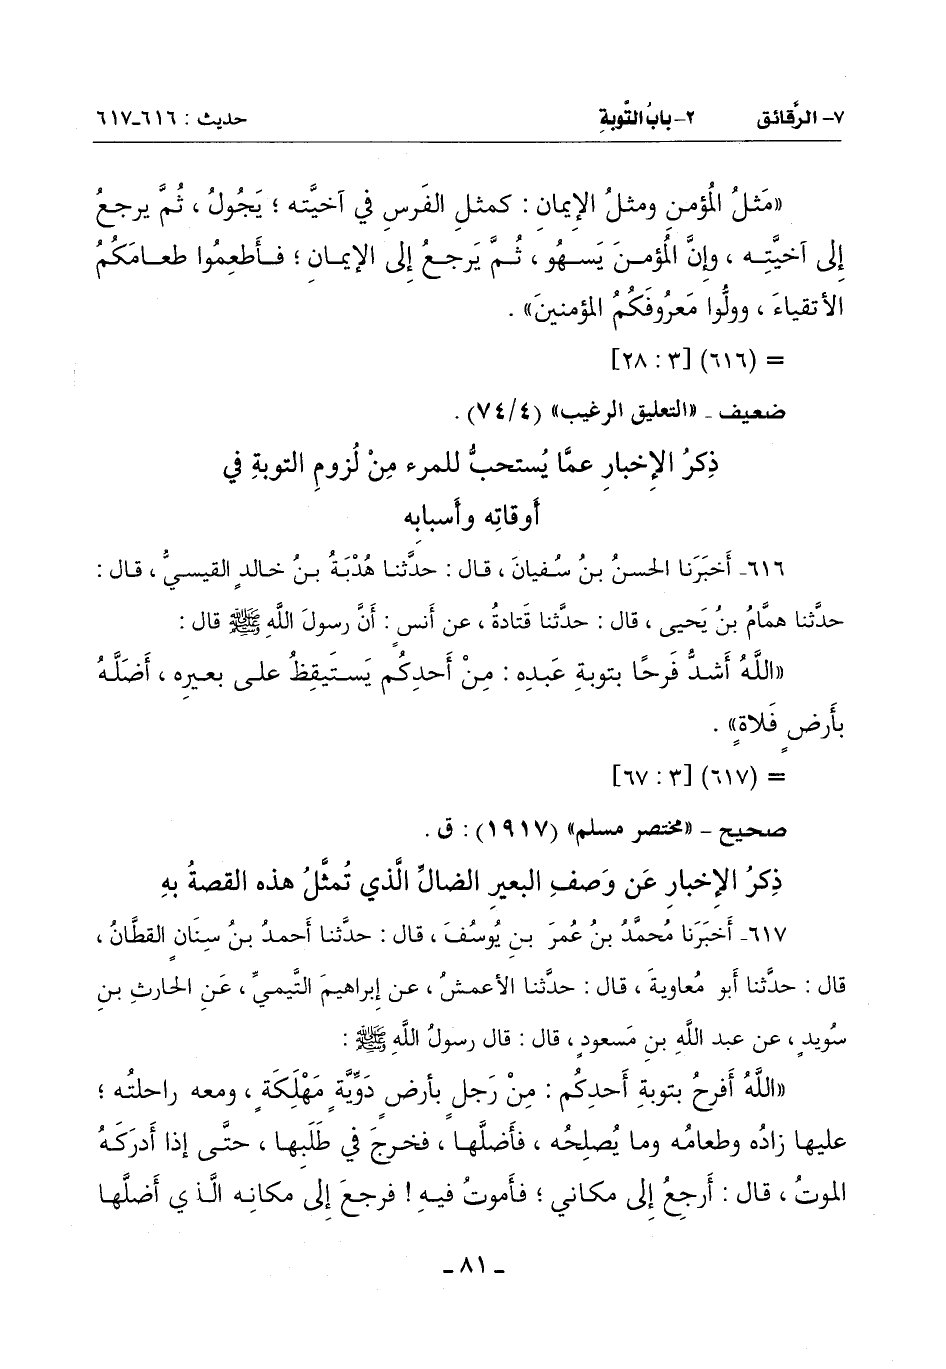 ٧- الرَّقائق ٢- بابُ التَّوبةِ حديث : ٦١٦ـ٦١٧
«مَثلُ المُؤمنِ ومثلُ الإيمانِ : كمثلِ الفَرسِ في آخيَّته ؛ يَجُولُ ، ثُمَّ يرجعُ
إلى آخيَّتِه ، وإنَّ المُؤمنَ يَسهُو ، ثُمَّ يَرجعُ إلى الإيمانِ ؛ فأَطعِمُوا طعامَكُمُ
الأتقياءَ ، وولُّوا مَعرُوفَكُمُ المؤمنينَ» .
= (٦١٦) [٣ : ٢٨]
ضعيف ـ «التعليق الرغيب» (٤/ ٧٤) .
ذِكرُ الإخبارِ عمَّا يُستحبُّ للمرءِ مِنْ لُزومِ التوبةِ في
أوقاتِه وأسبابِه
٦١٦ـ أخبَرَنا الحسنُ بنُ سُفيانَ ، قال : حدَّثنا هُدْبَةُ بنُ خالدٍ القيسيُّ ، قال :
حدَّثنا همَّامُ بنُ يَحيى ، قال : حدَّثنا قَتادةُ ، عن أنسٍ : أنَّ رسولَ اللَّهِ ﷺ قال :
«اللَّهُ أشدُّ فَرحًا بتوبةِ عَبدِه : مِنْ أَحدِكُم يَستَيقِظُ على بعيرِه ، أضَلَّهُ
بأَرضٍ فَلاةٍ» .
= (٦١٧) [٣ : ٦٧]
صحيح - «مختصر مسلم» (١٩١٧) : ق .
ذِكرُ الإخبارِ عَن وَصفِ البعيرِ الضالِّ الَّذي تُمثَّلُ هذه القصةُ بهِ
٦١٧ـ أخبَرَنا مُحمَّدُ بنُ عُمرَ بنِ يُوسُفَ ، قال : حدَّثنا أحمدُ بنُ سِنَانٍ القطَّانُ ،
قال : حدَّثنا أبو مُعاويةَ ، قال : حدَّثنا الأعمشُ ، عن إبراهيمَ التَّيميِّ ، عَنِ الحارثِ بنِ
سُويدٍ ، عن عبد اللَّهِ بنِ مَسعودٍ ، قال : قال رسولُ اللَّهِ ﷺ :
«اللَّهُ أَفرحُ بتوبةِ أَحدِكُم : مِنْ رَجلٍ بأَرضٍ دَوِّيَّةٍ مَهْلَكَةٍ ، ومعه راحلتُه ؛
عليها زادُه وطعامُه وما يُصلِحُه ، فأَضلَّها ، فخرجَ في طَلَبِها ، حتَّى إذا أَدرَكَهُ
الموتُ ، قال : أَرجِعُ إلى مكاني ؛ فأموتُ فيهِ ! فرجعَ إلى مكانِه الَّذي أضلَّها
ـ ٨١ ـ